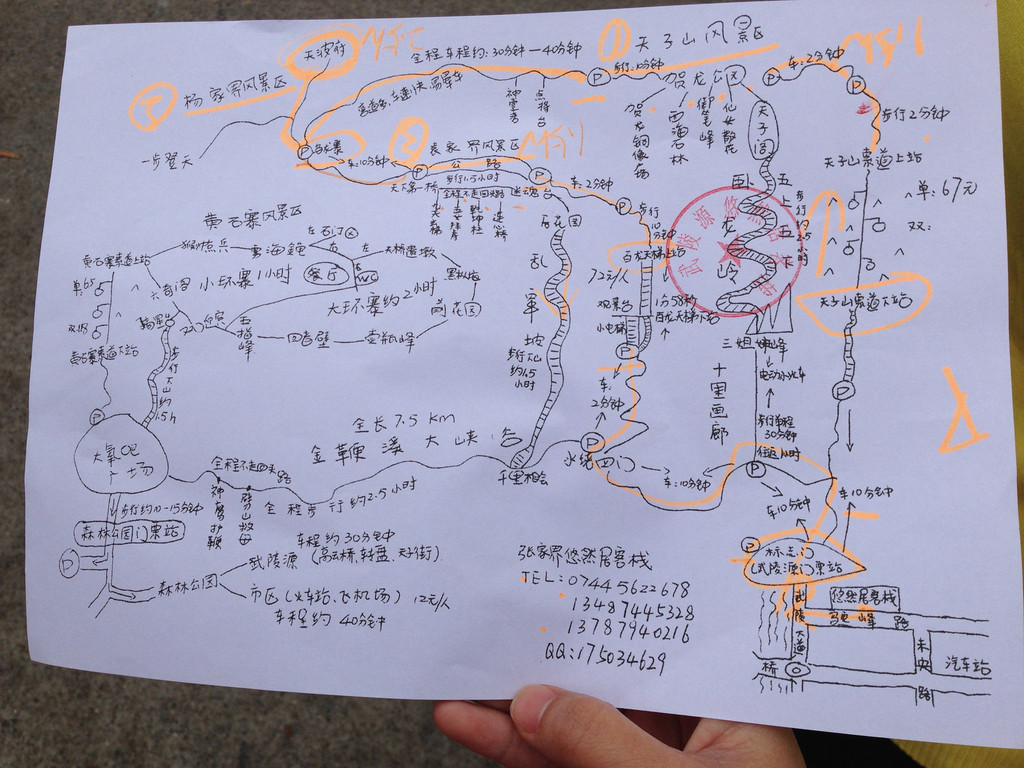 天波府
全程车程约:30分钟—40分钟
①
天子山风景区
步行:10分钟
车:2分钟
杨家界风景区
一步登天
神堂湾
点将台
贺龙公园
贺龙铜像广场
西海石林
御笔峰
仙女散花
天子阁
步行2分钟
天子山索道上站
单:67元
双:
车:10分钟
②
袁家界风景区
公路
步行1.5小时
全程不走回头路
天下第一桥
迷魂台
车:2分钟
后花园
步行10分钟
百龙天梯上站
72元/人
1分58秒
百龙天梯下站
观景台
小电梯
卧龙岭
五上五下
三姐妹峰
天子山索道下站
黄石寨风景区
黄石寨索道上站
单:65
黄石寨索道下站
六奇阁
小环寨1小时
雾海金龟
餐厅
WC
左
右
天桥遗墩
大环寨约2小时
五指峰
回音壁
花园
步行上山约1.5h
乱窜坡
步行上山约1.5小时
车:2分钟
十里画廊
电动小火车
步行单程30分钟
全长7.5 KM
金鞭溪大峡谷
千里相会
水绕四门
车:10分钟
大氧吧广场
全程不走回头路
神鹰护鞭
劈山救母
全程步行约2.5小时
步行约10-15分钟
森林公园门票站
森林公园
车程约30分钟
武陵源
市区(火车站、飞机场) 12元/人
车程约40分钟
车10分钟
车10分钟
标志门
(武陵源门票站)
张家界悠然居客栈
TEL:0744 5622678
13487445328
13787940216
QQ:175034629
悠然居客栈
武陵大道
桥
未央路
汽车站